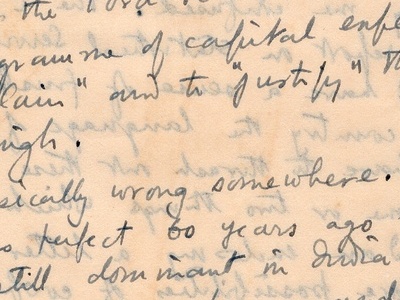 the
gramme of capital expe
lain" and to "justify" th
nigh.
sically wrong somewhere.
s perfect 60 years ago
still dominant in India